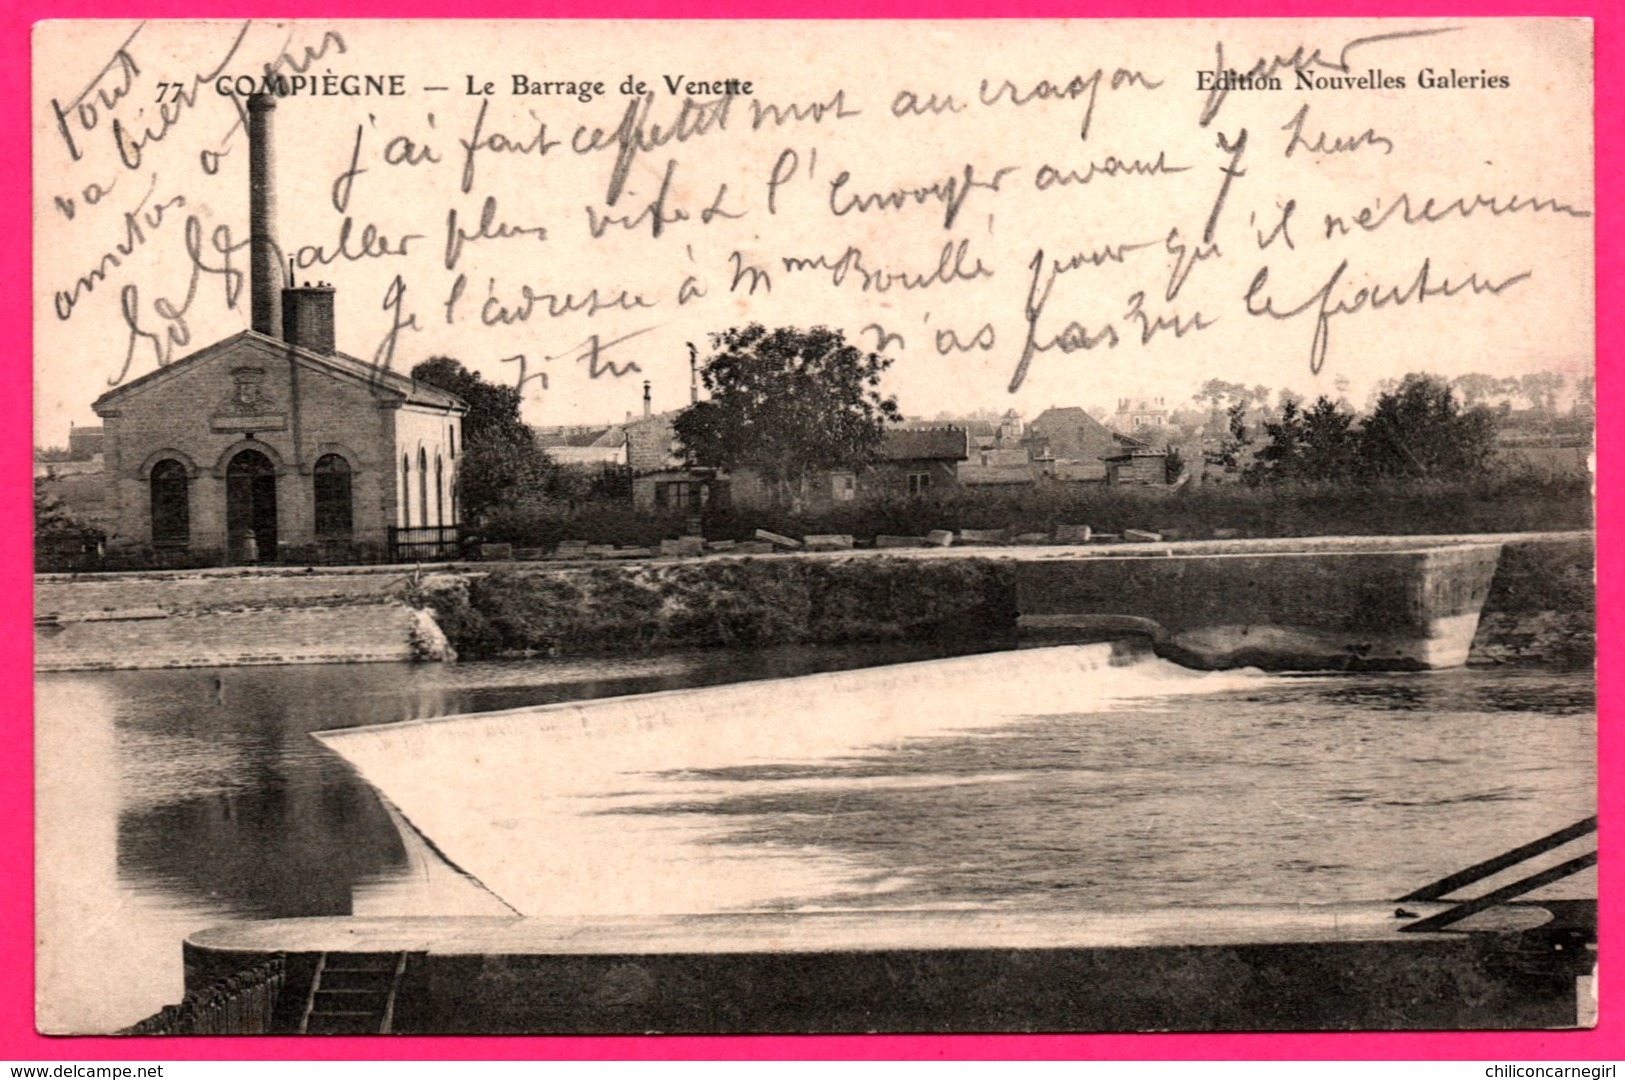 77 COMPIÈGNE — Le Barrage de Venette
Edition Nouvelles Galeries
j'ai fait ce petit mot au crayon pour
aller plus vite & l'envoyer avant 7 heurs
Je l'adresse à Mme Boullé pour qu'il n'érevienne
si tu n'as pas vu le facteur
tout
va bien
amitiés à tous
www.delcampe.net
chiliconcarnegirl